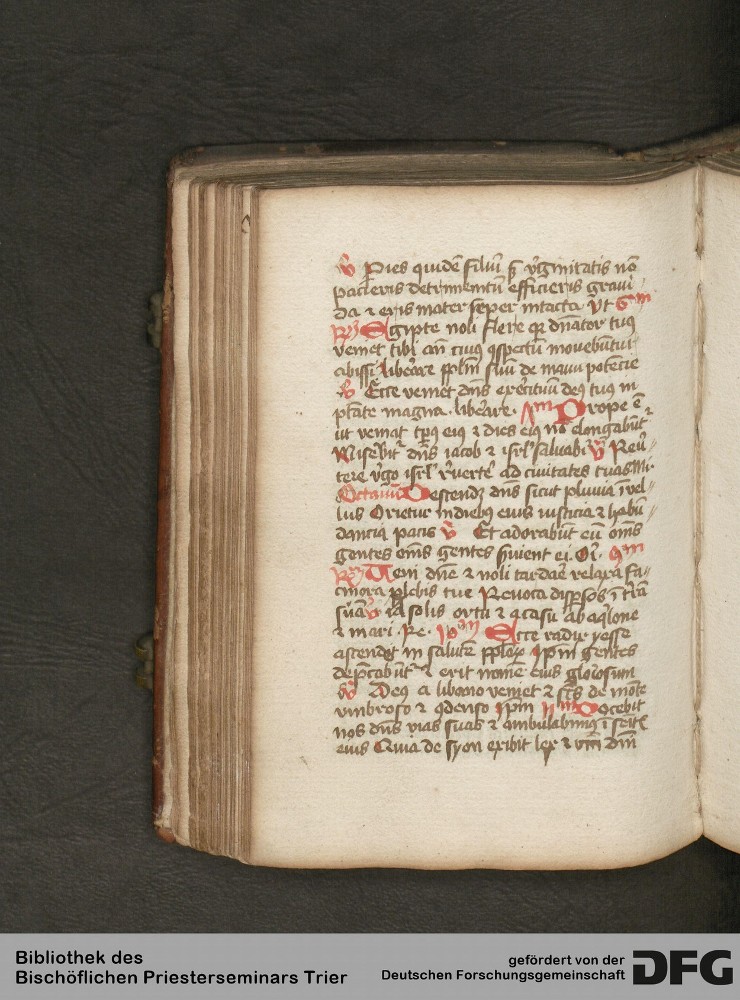 v Paries quidē filiū s vʼginitatis nō
pacieris detrimentū efficieris gravi
da ⁊ eris mater sēper intacta Vt
Egipte noli flere qz dn̄ator tuꝯ
veniet tibi an̄ cuiꝯ ꝯspectū movebūtur
abissi liberare pplm suū de manu potencie
v Ecce veniet dn̄s exercituū deꝯ tuꝯ in
ptāte magna. liberare. Prope ē
ut veniat tp̄ꝯ eiꝯ ⁊ dies eiꝯ nō elongabūt
Misebit̉ dn̄s iacob ⁊ isrl̕ salvabit̉ v Rev̄
tere v̓go isrl̕ r̓vertē ad civitates tuas Mi.
Octavū Descendz dn̄s sicut pluvia ī vel
lus Orietur in diebꝯ eius iusticia ⁊ habū
dancia pacis v Et adorabūt eū om̄s
gentes om̄s gentes s̓uient ei. Or̓.
Veni dn̄e ⁊ noli tardare relaxa fa
cinora plebis tue Revoca disp̄sos ī t̓rā
suā v ia solis ortu ⁊ occasu ab aq̓lone
⁊ mari. Re. Ecce radix yesse
ascendet in salutē pplo℞ ip̄m gentes
dep̄cabūt̉ ⁊ erit nomē eius gl̓osum
v Deꝯ a libano veniet ⁊ sc̄s de mōte
umbroso ⁊ ꝯdenso ip̄m Docebit
nos dn̄s vias suas ⁊ ambulabimꝯ ī seīt̓
eius Quia de syon exibit lex ⁊ v̓m̄ dn̄i
Bibliothek des
Bischöflichen Priesterseminars Trier
gefördert von der
Deutschen Forschungsgemeinschaft
DFG